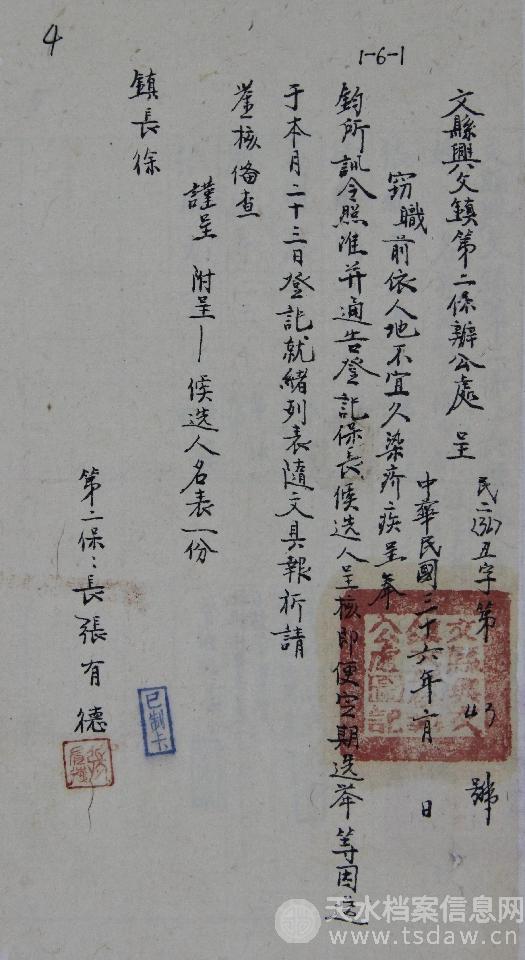 4
1-6-1
文縣興文鎮第二保辦公處 呈
民二 丑字第 43 號
中華民國三十六年二月 日
竊職前依人地不宜久染疥疾呈奉
鈞所訊令照准并通告登記保長候选人呈核即便定期选举等因遵
于本月二十三日登記就緒列表隨文具報祈請
鉴核俻查
謹呈 附呈一候选人名表一份
鎮長徐
第二保:長張有德
文縣興文
公處圖記
已制卡
天水档案信息网
www.tsdaw.cn